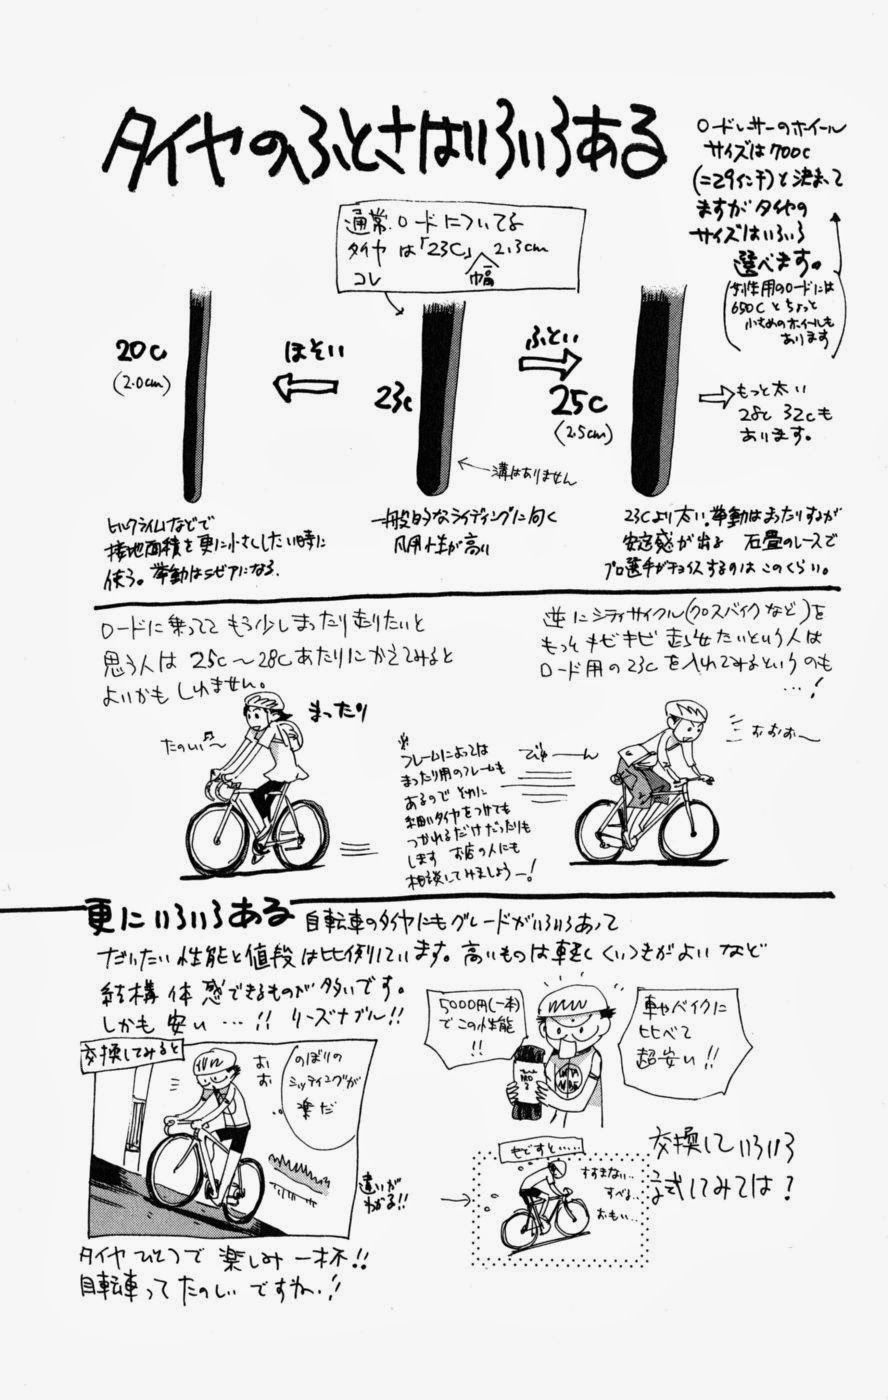 タイヤのふとさはいろいろある
ロードレーサーのホイール
サイズは700c
(=29インチ)と決まって
ますがタイヤの
サイズはいろいろ
選べます。
(女性用のロードには
650Cとちょっと
小さめのホイールも
あります)
通常ロードについてる
タイヤは「23C」 2.3cm
コレ 幅
20c
(2.0cm)
ほそい
23c
ふとい
25c
(2.5cm)
もっと太い
28c 32cも
あります。
溝はありません
ヒルクライムなどで
接地面積を更に小さくしたい時に
使う。挙動はシビアになる.
一般的なライディングに向く
汎用性が高い
23Cより太い。挙動はまったりするが
安定感が出る 石畳のレースで
プロ選手がチョイスするのはこのくらい。
ロードに乗ってて もう少しまったり走りたいと
思う人は 25c〜28cあたりにかえてみると
よいかもしれません。
まったり
たのしい〜
逆にシティサイクル(クロスバイクなど)を
もっとキビキビ走らせたいという人は
ロード用の23cを入れてみるというのも
…!
おおお〜
びゅーん
※
フレームによっては
まったり用のフレームも
あるので それに
細いタイヤをつけても
つかれるだけだったりも
します お店の人にも
相談してみましょうー!
更にいろいろある 自転車のタイヤにもグレードがいろいろあって
だいたい性能と値段は比例しています。高いものは軽くくいつきがよいなど
結構体感できるものが多いです。
しかも安い…!! リーズナブル!!
5000円(一本)
でこの性能
!!
車やバイクに
比べて
超安い!!
交換してみると
おお
のぼりの
シッティングが
楽だ
違いが
わかる!!
もどすと……
すすまない…
すべる…
おもい…
交換していろいろ
試してみては?
タイヤひとつで楽しみ一杯!!
自転車ってたのしいですね!